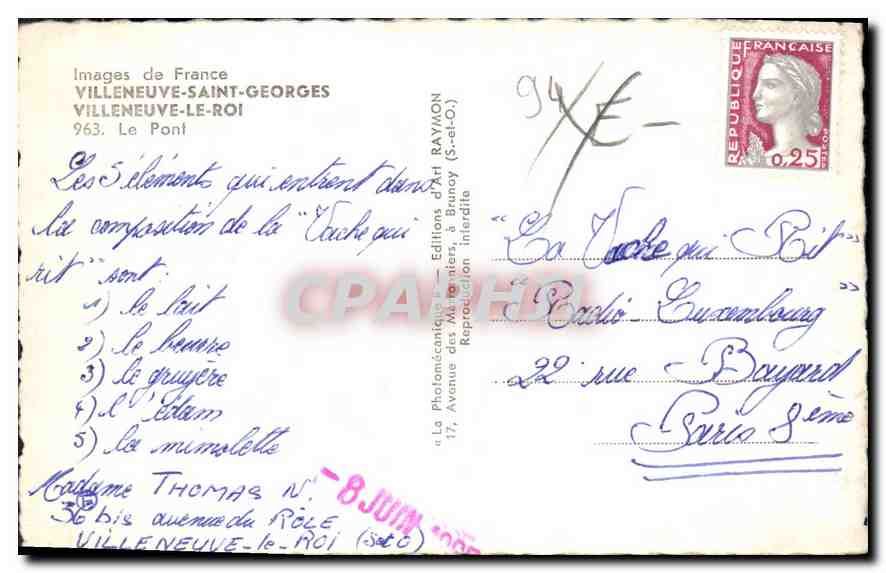 Images de France
VILLENEUVE-SAINT-GEORGES
VILLENEUVE-LE-ROI
963. Le Pont
Les 5 éléments qui entrent dans
la composition de la "Vache qui
rit" sont.
1) le lait
2) le beurre
3) le gruyère
4) l'édam
5) la mimolette
Madame THOMAS N.
36 bis avenue du RÔLE
VILLENEUVE-le-ROI (S et O)
-8 JUIN
« La Photomécanique » — Editions d'Art RAYMON
17, Avenue des Marronniers, à Brunoy (S.-et-O.)
Reproduction interdite
94
E -
REPUBLIQUE FRANÇAISE
POSTES
0,25
"La Vache qui Rit"
"Radio-Luxembourg"
22 rue Bayard
Paris 8ème
CPAPHIL